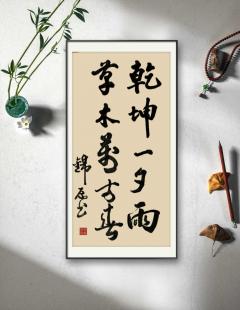 乾坤一夕雨
草木萬方春
錦石书